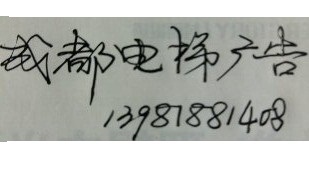 成都电梯广告
13981881408